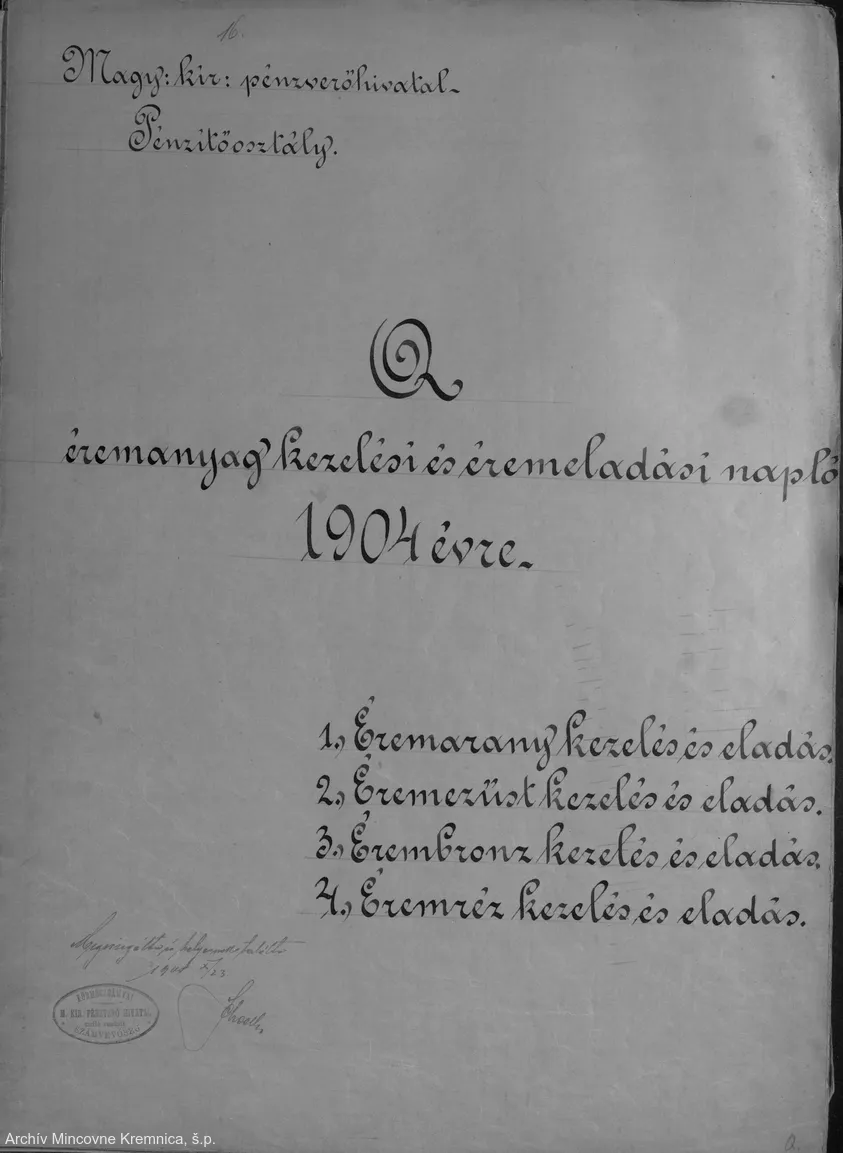 16.
Magy: kir: pénzverőhivatal.
Pénzitőosztály.
Q
éremanyag kezelési és éremeladási napló
1904 évre.
1., Éremarany kezelés és eladás.
2., Éremezüst kezelés és eladás.
3., Érembronz kezelés és eladás.
4., Éremréz kezelés és eladás.
Megvizsgáltam és helyesnek találtam
M. KIR. PÉNZVERŐ HIVATAL
SZÁMVEVŐSÉG
Archív Mincovne Kremnica, š.p.